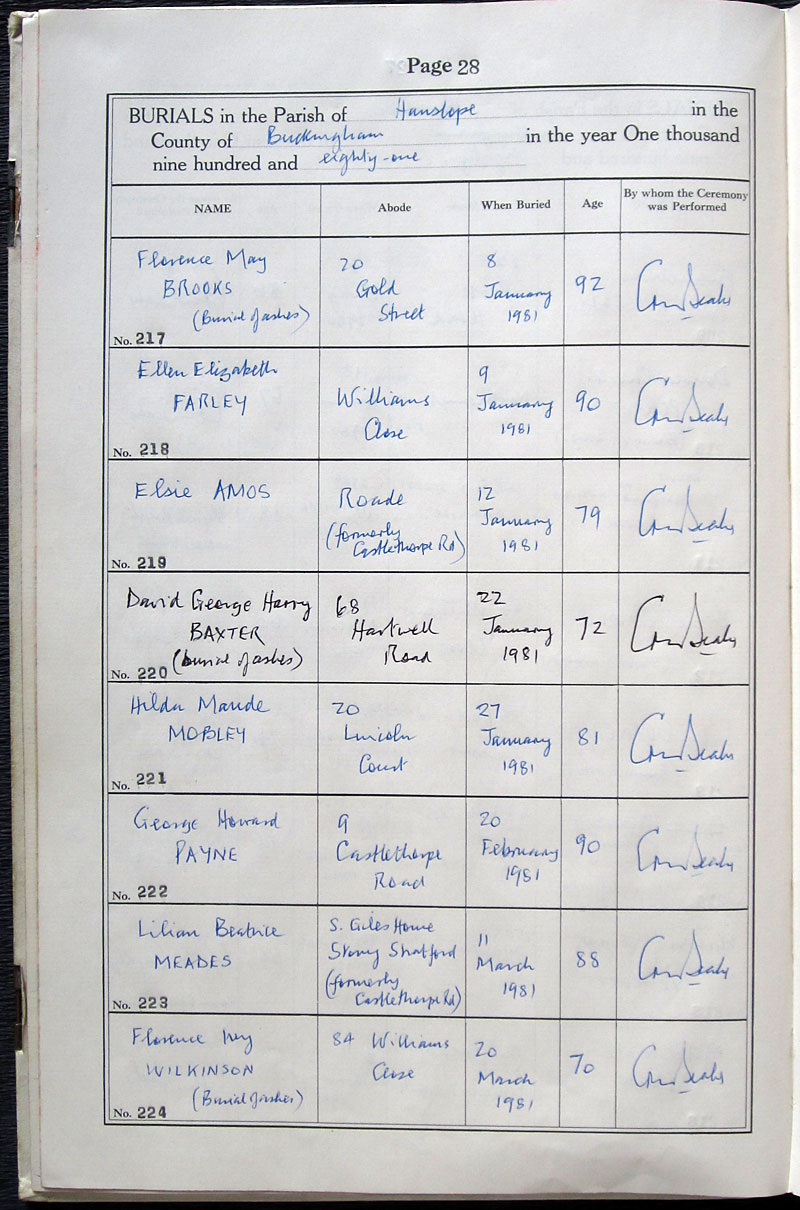 Page 28
BURIALS in the Parish of Hanslope in the
County of Buckingham in the year One thousand
nine hundred and eighty-one
NAME Abode When Buried Age By whom the Ceremony was Performed
Florence May 20 8
BROOKS Gold January 92
(Burial of ashes) Street 1981
No. 217
Ellen Elizabeth 9
FARLEY Williams January 90
Close 1981
No. 218
Elsie AMOS Roade 12
(formerly January 79
Castlethorpe Rd) 1981
No. 219
David George Harry 68 22
BAXTER Hartwell January 72
(burial of ashes) Road 1981
No. 220
Hilda Maude 20 27
MOBLEY Lincoln January 81
Court 1981
No. 221
George Howard 9 20
PAYNE Castlethorpe February 90
Road 1981
No. 222
Lilian Beatrice S. Giles Home 11
MEADES Stony Stratford March 88
(formerly 1981
Castlethorpe Rd)
No. 223
Florence Ivy 84 Williams 20
WILKINSON Close March 70
(Burial of ashes) 1981
No. 224